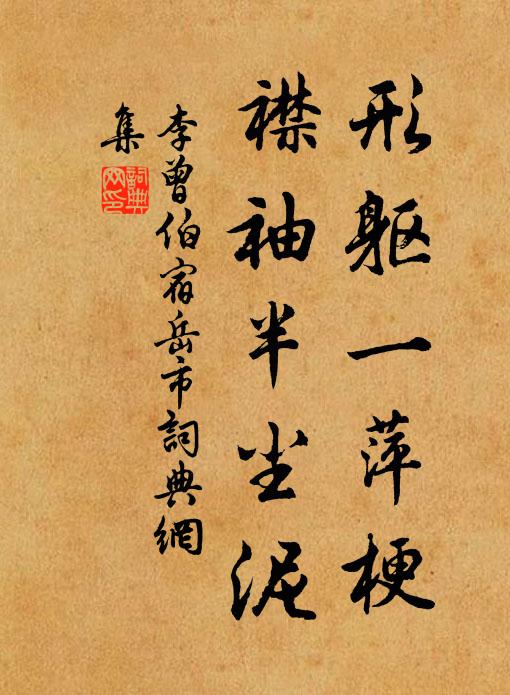 形躯一萍梗
襟袖半尘泥
李曾伯宿岳市詞典網
集
詞典網印